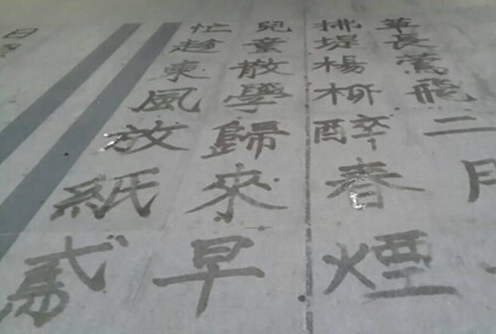 草長鶯飛二月
拂堤楊柳醉春煙
兒童散學歸來早
忙趁東風放紙鳶